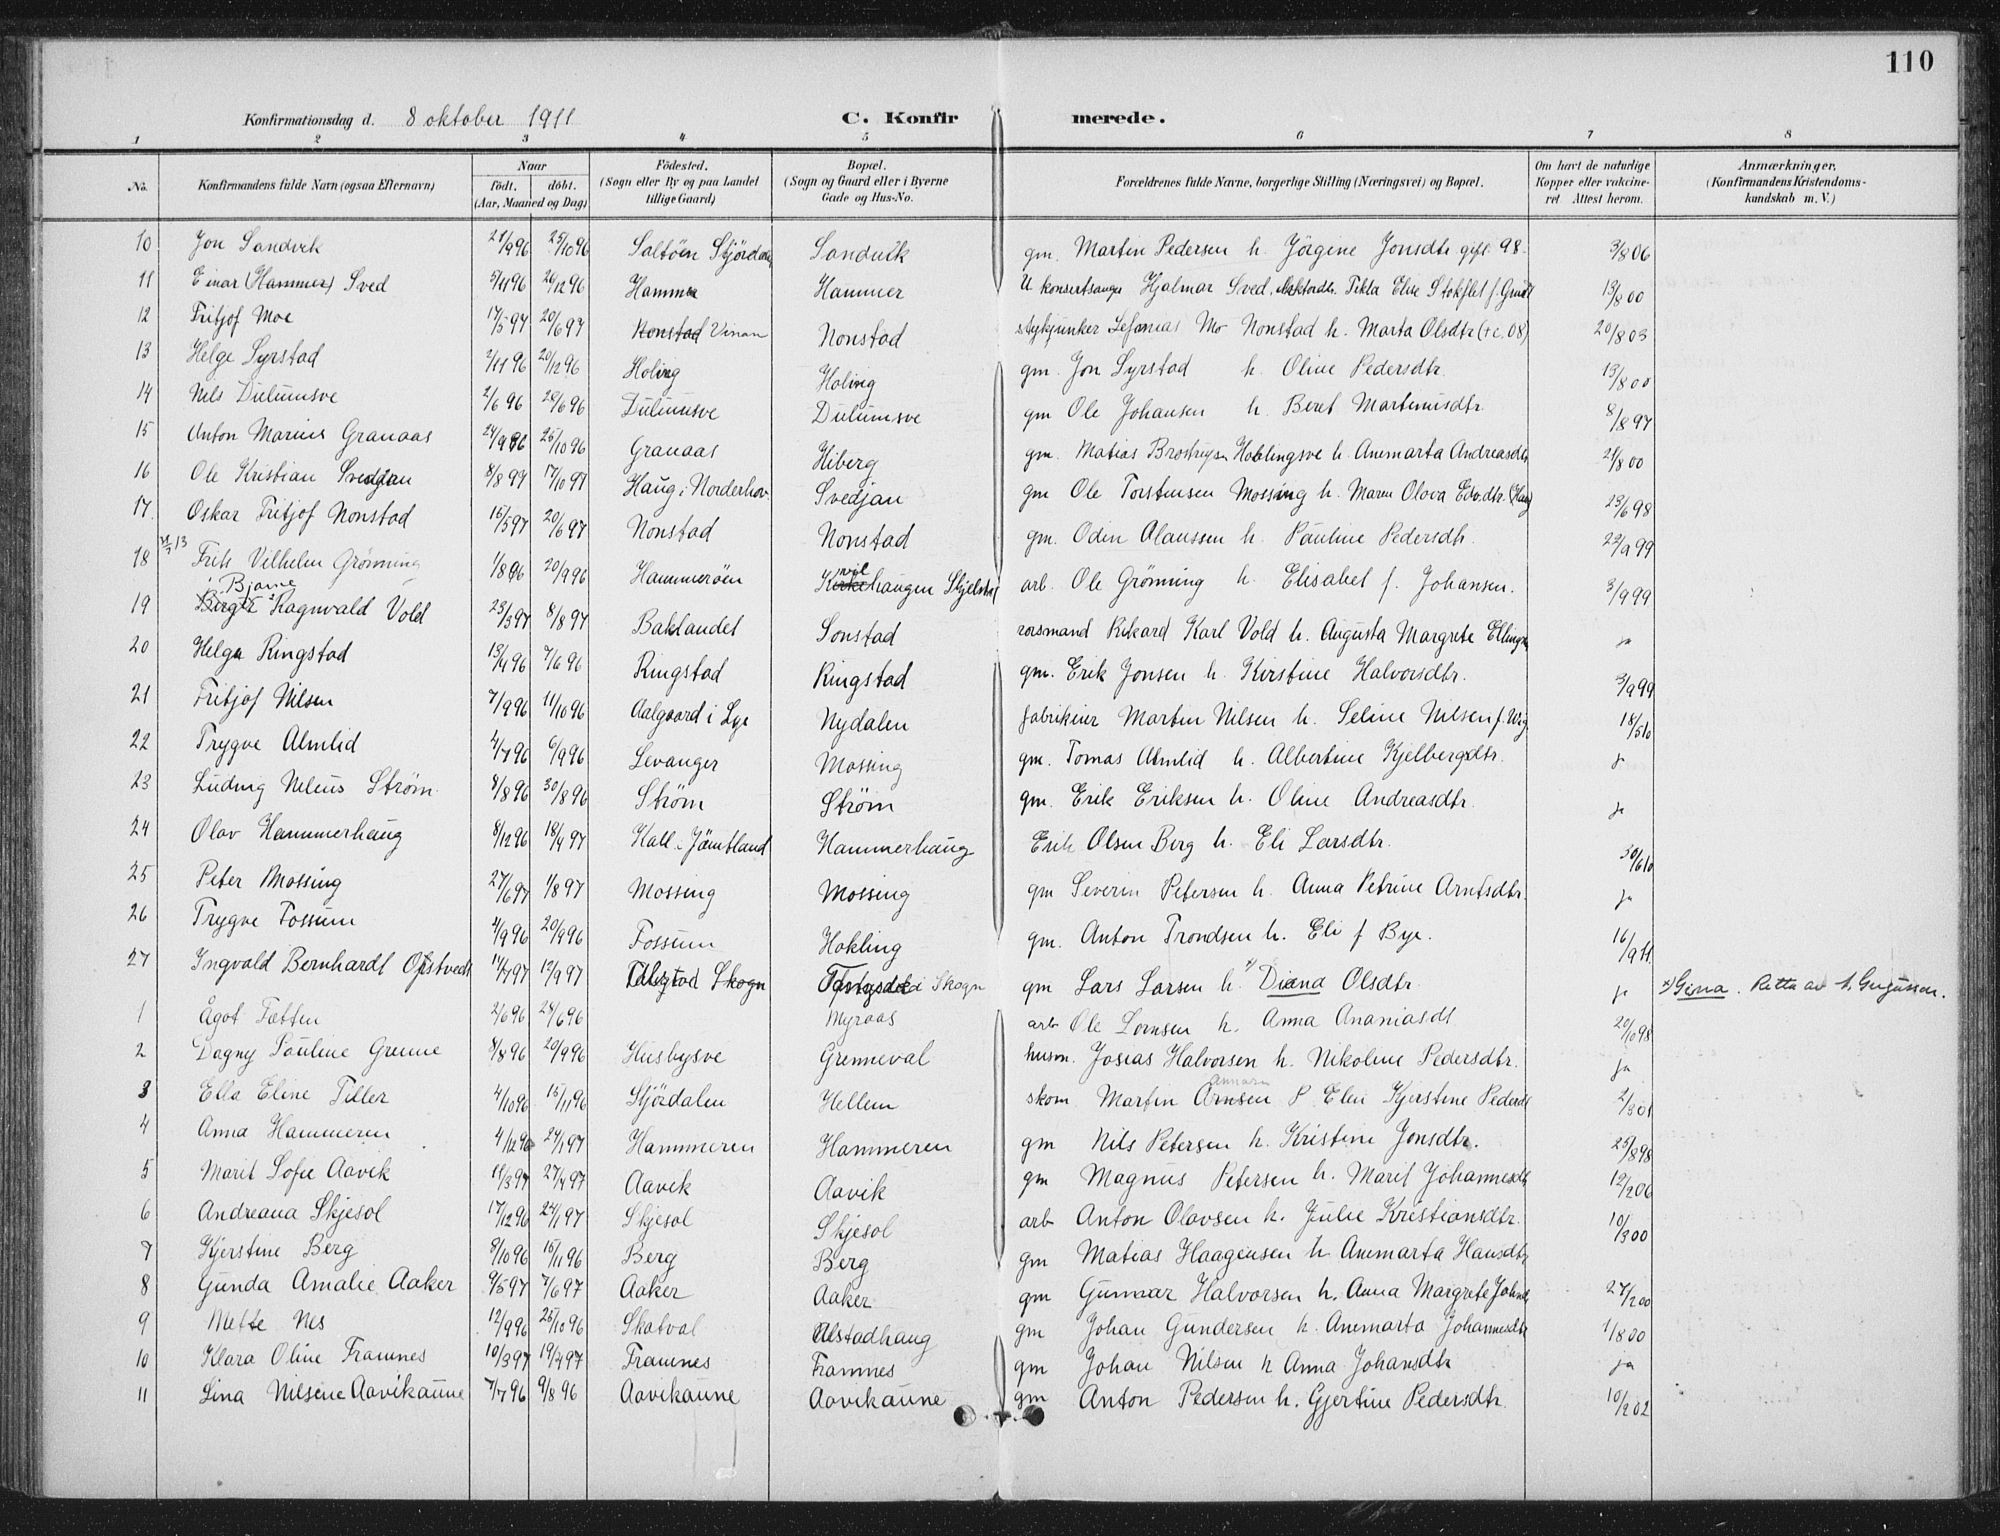 110
Konfirmationsdag d. 8 oktober 1911 C. Konfirmerede.
1 2 3 4 5 6 7 8
No. Konfirmandens fulde Navn (ogsaa Efternavn) Naar födt. döbt. (Aar, Maaned og Dag) Födested. (Sogn eller By og paa Landet tillige Gaard) Bopæl. (Sogn og Gaard eller i Byerne Gade og Hus-No. Forældrenes fulde Navne, borgerlige Stilling (Næringsvei) og Bopæl. Om havt de naturlige Kopper eller vakcineret Attest herom. Anmærkninger, (Konfirmandens Kristendomskundskab m. V.)
10 Jon Sandvik 21/9 96 25/10 96 Saltöen Stjördalen Sandvik gm. Martin Pedersen h. Jörgine Jonsdtr. gift 98. 3/8 06
11 Einar (Hammer) Sved 5/11 96 26/12 96 Hammer Hammer U konsertsanger Hjalmar Sved, Tekla Elise Stokflet f. 13/8 00
12 Fritjof Moe 17/5 97 20/6 97 Nonstad Vinan Nonstad stykjunker Mo Nonstad h. Marta Olsdtr (+c. 08) 20/8 03
13 Helge Syrstad 2/11 96 20/12 96 Holing Holing gm. Jon Syrstad h. Oline Pedersdtr. 13/8 00
14 Nils Dulumsve 2/6 96 28/6 96 Dulumsve Dulumsve gm Ole Johansen h. Beret Martinusdtr. 8/8 97
15 Anton Marius Granaas 24/9 96 25/10 96 Granaas Hiberg gm. Matias Hoklingsve h. Anemarta Andreasdtr 21/8 00
16 Ole Kristian Svedjan 8/8 97 17/10 97 Haug i Norderhov. Svedjan gm Ole Torstensen Mossing h. Maren Olova Edv.dtr. (Haug) 23/6 98
17. Oskar Fritjof Nonstad 15/5 97 20/6 97 Nonstad Nonstad gm. Odin Olaussen h. Pauline Pedersdtr. 22/9 99
18 Frits Vilhelm Grönning 1/8 96 20/9 96 Hammeröen Kvelhaugen Skjelstad arb. Ole Grönning h. Elisabet f. Johansen. 3/9 99
19 Birger Bjarne Ragnvald Vold 23/3 97 8/8 97 Baklandet Sonstad rorsmand Rikard Karl Vold h. Augusta Margrete Ellingsen ja
20 Helga Ringstad 13/4 96 7/6 96 Ringstad Ringstad gm. Erik Jonsen h. Kirstine Halvorsdtr. 3/9 99
21 Fritjof Nilsen 7/9 96 11/10 96 Aalgaard i Lye Nydalen fabrikeier Martin Nilsen h. Seline Nilsen f. 18/5 10
22 Trygve Almlid 4/7 96 6/9 96 Levanger Mossing gm. Tomas Almlid h. Albertine Kjelbergsdtr. ja
23 Ludvig Nelius Ström. 8/8 96 30/8 96 Ström Ström gm. Erik Eriksen h. Oline Andreasdtr. ja
24 Olav Hammerhaug 8/12 96 18/4 97 Kall i Jämtland Hammerhaug Erik Olsen Berg h. Eli Larsdtr. 30/6 10
25 Peter Mossing 27/6 97 1/8 97 Mossing Mossing gm Severin Petersen h. Anna Petrine Arntsdtr. ja
26 Trygve Fossum 4/9 96 20/9 96 Fossum Hokling gm. Anton Trondsen h. Eli f Bye. 16/9 11
27 Ingvald Bernhardt Opstvedt 14/7 97 12/9 97 Skogn i Skogn gm Lars Larsen h. x) Diana Olsdtr. ja x) Gina. Retta av
1 Ågot Tetten 2/6 96 24/6 96 Myraas arb Ole Lornsen h. Anna Ananiasdt 20/10 98
2 Dagny Pauline Grenne 8/8 96 20/9 96 Husbysve Grenneval husm. Josias Halvorsen h. Nikoline Pedersdtr. ja
3 Ella Eline Tiller 4/10 96 15/11 96 Stjördalen Hellem skom Martin Arnsen P. Elen Kjerstine Pedersdt 2/3 01
4 Anna Hammeren 4/12 96 24/1 97 Hammeren Hammeren gm Nils Petersen h. Kristine Jonsdtr. 25/8 98
5 Marit Sofie Aavik 11/3 97 27/4 97 Aavik Aavik gm Magnus Petersen h. Marit Johannesdtr 12/2 06
6 Andreana Skjesol 17/12 96 24/1 97 Skjesol Skjesol arb Anton Olavsen h. Julie Kristiansdtr. 10/3 00
7 Kjerstine Berg 8/10 96 15/11 96 Berg Berg gm Matias Haagensen h. Anemarta Hansdtr
8 Gunda Amalie Aaker 9/5 97 7/6 97 Aaker Aaker gm Gunnar Halvorsen h. Anna Margrete 27/2 00
9 Mette Nes 12/9 96 25/10 96 Skatval Alstadhaug gm Johan Gundersen h. Anemarta Johannesdtr 1/8 00
10 Klara Oline Framnes 10/3 97 19/4 97 Framnes Framnes gm Johan Nilsen h Anna Johansdtr ja
11 Lina Nilsene Aavikaune 7/7 96 9/8 96 Aavikaune Aavikaune gm Anton Pedersen h. Gjertine Pedersdtr. 10/2 02